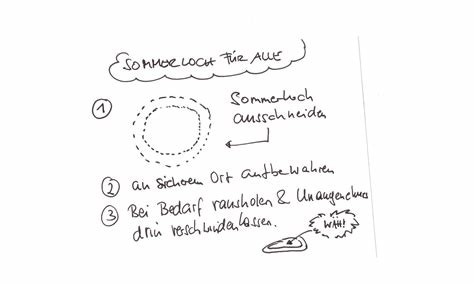 SOMMERLOCH FÜR ALLE
1 Sommerloch
ausschneiden
2 an sicherem Ort aufbewahren
3 Bei Bedarf rausholen & Unangenehmes
drin verschwinden lassen.
WAH!